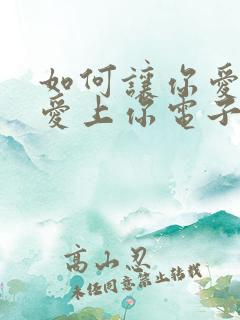 如何讓你愛
愛上你電子
高山忍
未经同意禁止转载